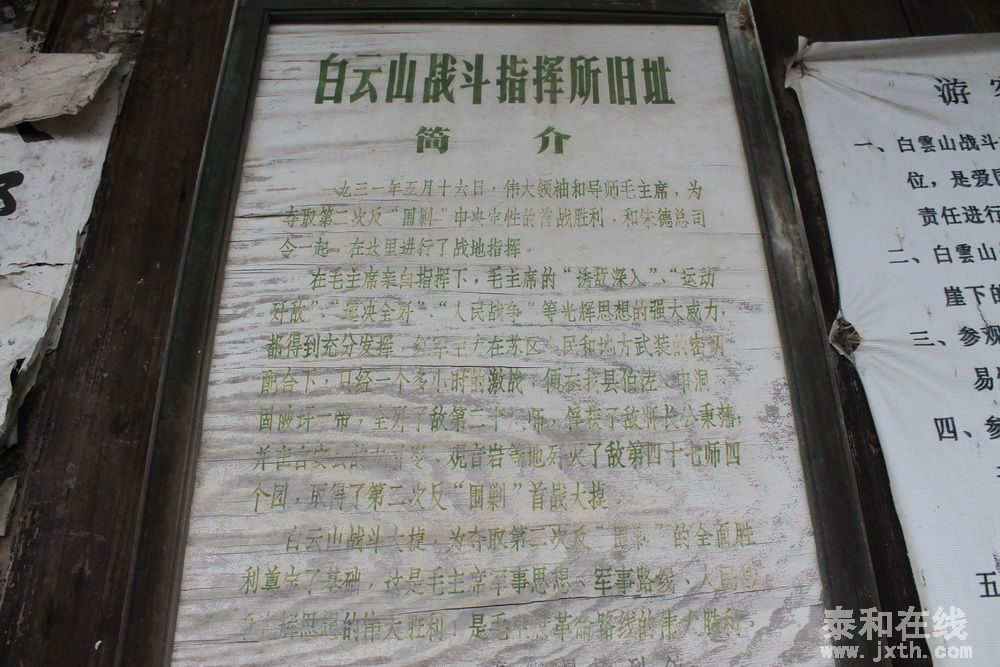 白云山战斗指挥所旧址
简 介
一九三一年五月十六日，伟大领袖和导师毛主席，为
夺取第二次反“围剿”中决定性的首战胜利，和朱德总司
令一起，在这里进行了战地指挥。
在毛主席亲自指挥下，毛主席的“诱敌深入”、“运动
歼敌”、“速决全歼”、“人民战争”等光辉思想的强大威力，
都得到充分发挥，红军主力在苏区人民和地方武装的密切
配合下，只经一个多小时的激战
一带，全歼了敌第二十 师，俘获了敌师长公秉藩；
观音岩等地歼灭了敌第四十七师四
个团，取得了第二次反“围剿”首战大捷。
白云山战斗大捷，为夺取第二次反“围剿”的全面胜
利奠定了基础，这是毛主席军事思想、军事路线、人民战
争光辉思想的伟大胜利，是毛主席革命路线的伟大胜利。
游
一、白雲山战斗
位，是爱国
责任进行
二、白雲山
崖下的
三、参观
易
四、参
五
泰和在线
www.jxth.com